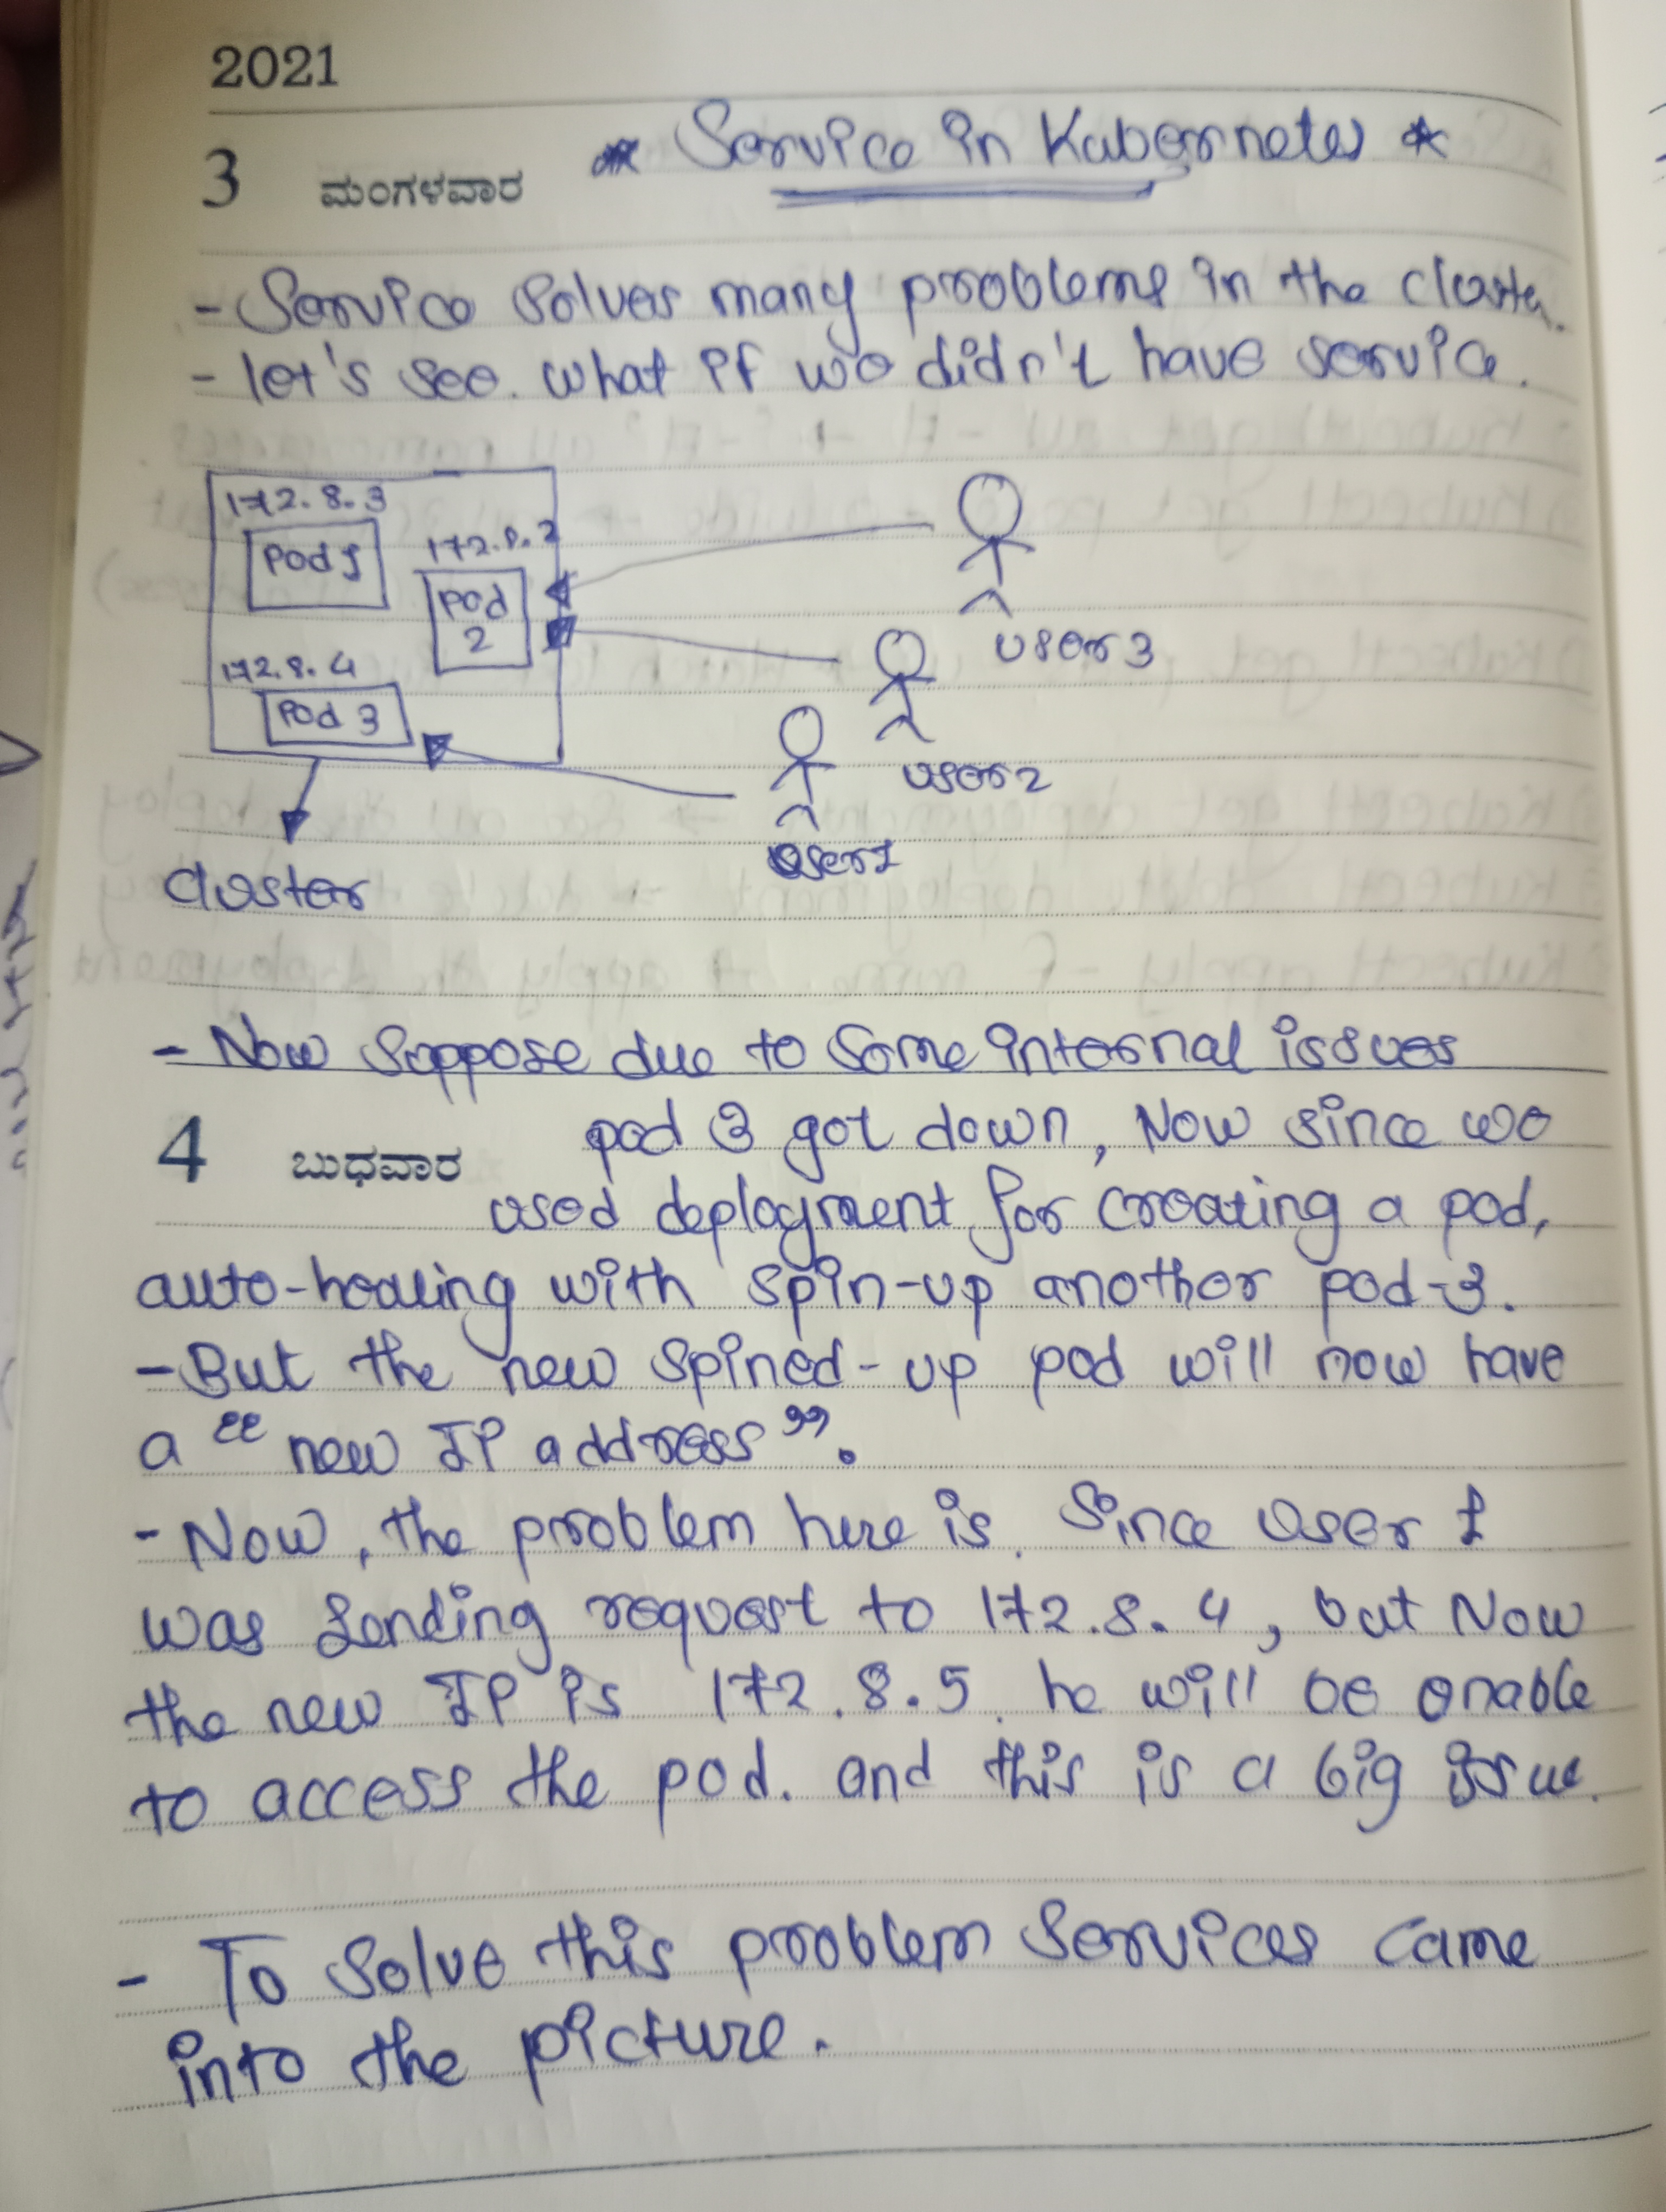 2021
3 ಮಂಗಳವಾರ
* Service in Kubernetes *
- Service solves many problems in the cluster.
- let's see. what if we didn't have service.
172.8.3
Pod 1
172.8.2
Pod
2
172.8.4
Pod 3
User 3
User 2
User 1
Cluster
- Now Suppose due to Some internal issues
4 ಬುಧವಾರ
pod 3 got down, Now since we
used deployment for creating a pod,
auto-healing with spin-up another pod-3.
- But the new spined-up pod will now have
a "new IP address".
- Now, the problem here is. Since User 1
was sending request to 172.8.4, but Now
the new IP is 172.8.5. he will be unable
to access the pod. and this is a big issue.
- To Solve this problem Services came
into the picture.